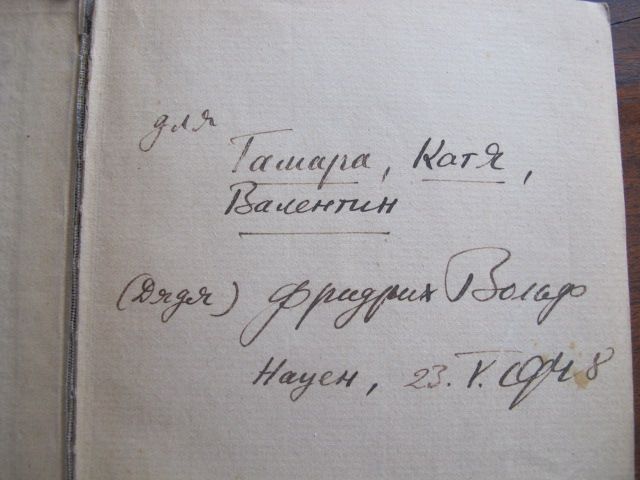 для
Тамара, Катя,
Валентин
(Дядя) Фридрих
Науен, 23. V. 1948